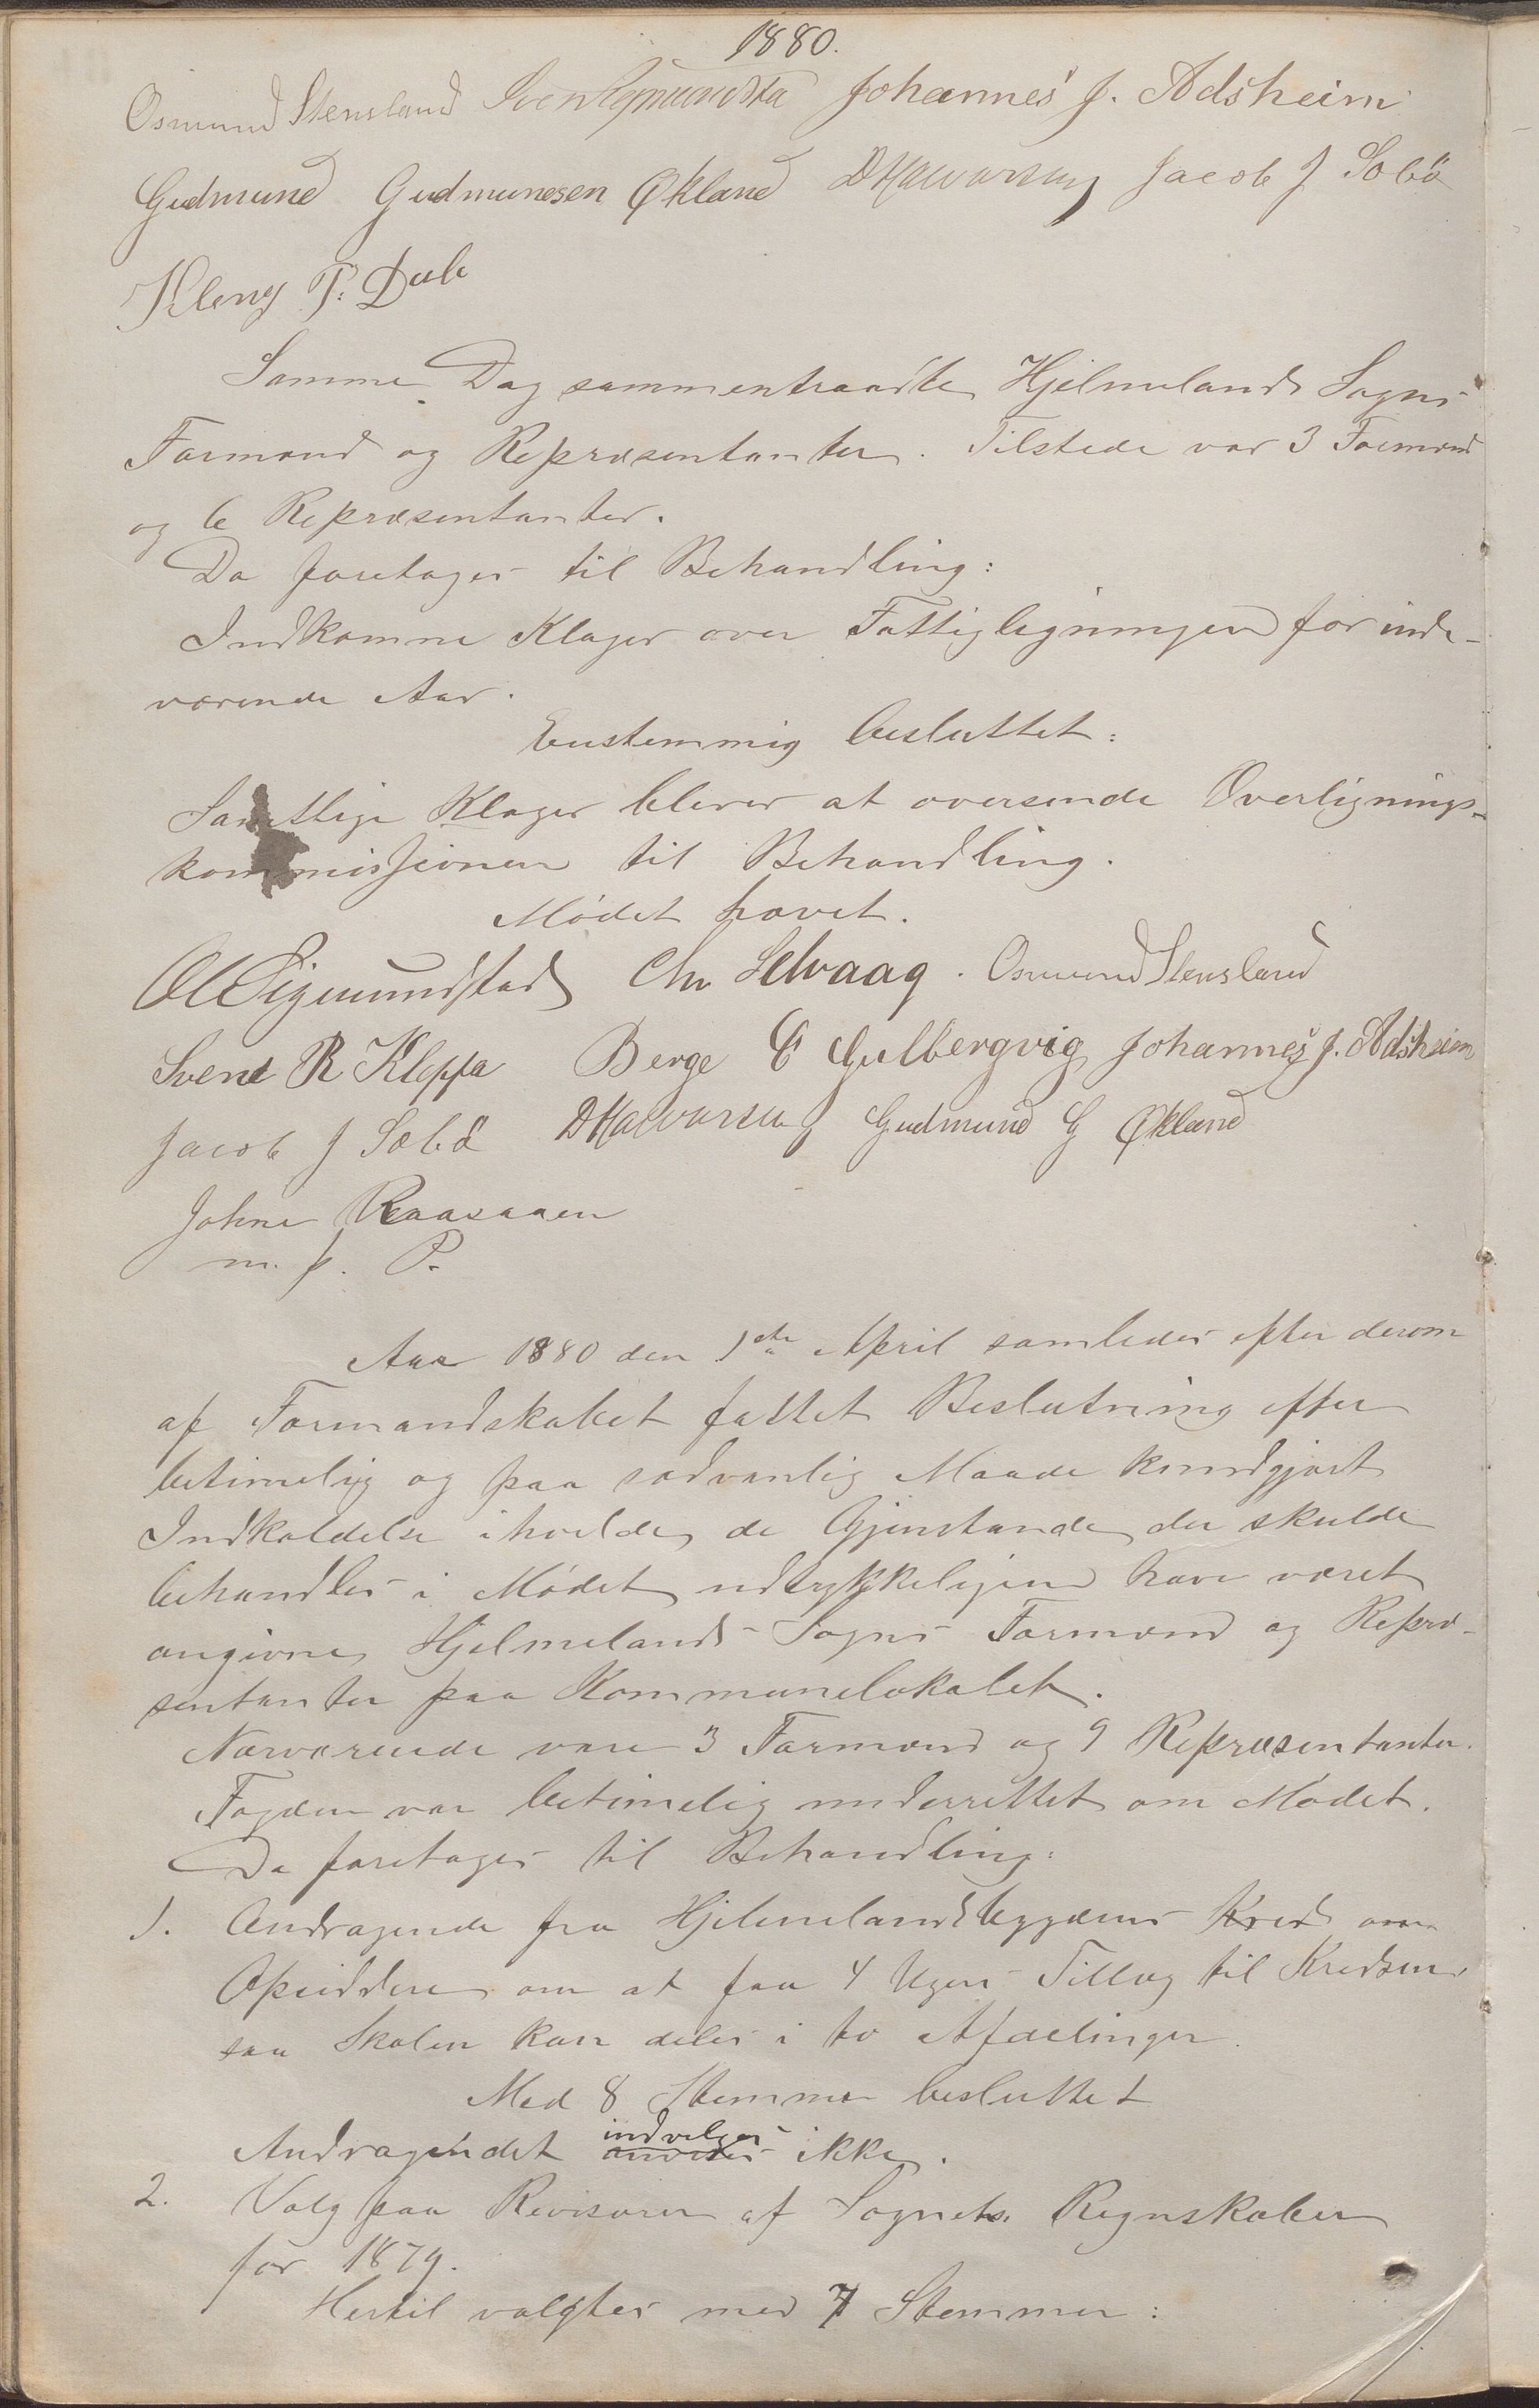 1880.
Osmund Stensland Johannes J. Adsheim
Gudmund Gudmunesen Økland DHalvorsen Jacob J Sæbö
Kleng P. Dale
Samme Dag sammentraadte Hjelmelands Sogns
Formænd og Repræsentanter. Tilstede var 3 Formænd
og 6 Repræsentanter.
Da foretoges til Behandling:
Indkomne Klager over Fattigligningen for inde-
værende Aar.
Eenstemmig besluttet:
Samtlige Klager bliver at oversende Overlignings-
kommissionen til Behandling.
Mødet hævet.
Ol Sigmundstad Chr Selvaag. Osmund Stensland
Svend R Kleppa Berge E Gulbergvig Johannes J. Adsheim
Jacob J Sæbö DHalvorsen Gudmund G Økland
Johne Raasaaen
m. f. P.
Aar 1880 den 1ste April samledes efter derom
af Formandskabet fattet Beslutning efter
betimelig og paa sædvanlig Maade kundgjort
Indkaldelse ihvilden de Gjenstande der skulde
behandles i Mødet udtrykkeligen have været
angivne, Hjelmelands Sogns Formænd og Repræ-
sentanter paa Kommunelokalet.
Nærværende vare 3 Formænd og 9 Repræsentanter.
Fogden var betimelig underrettet om Mødet.
Da foretoges til Behandling:
1. Andragende fra Hjelmelandsbygdens Kreds
Opsiddere om at faa 4 Ugers Tillæg til Kredsen
saa Skolen kan deles i to Afdelinger.
Med 8 Stemmer besluttet
indvilges
Andragendet ikke.
2. Valg paa Revisorer af Sognets Regnskaber
for 1879.
Hertil valgtes med 7 Stemmer: